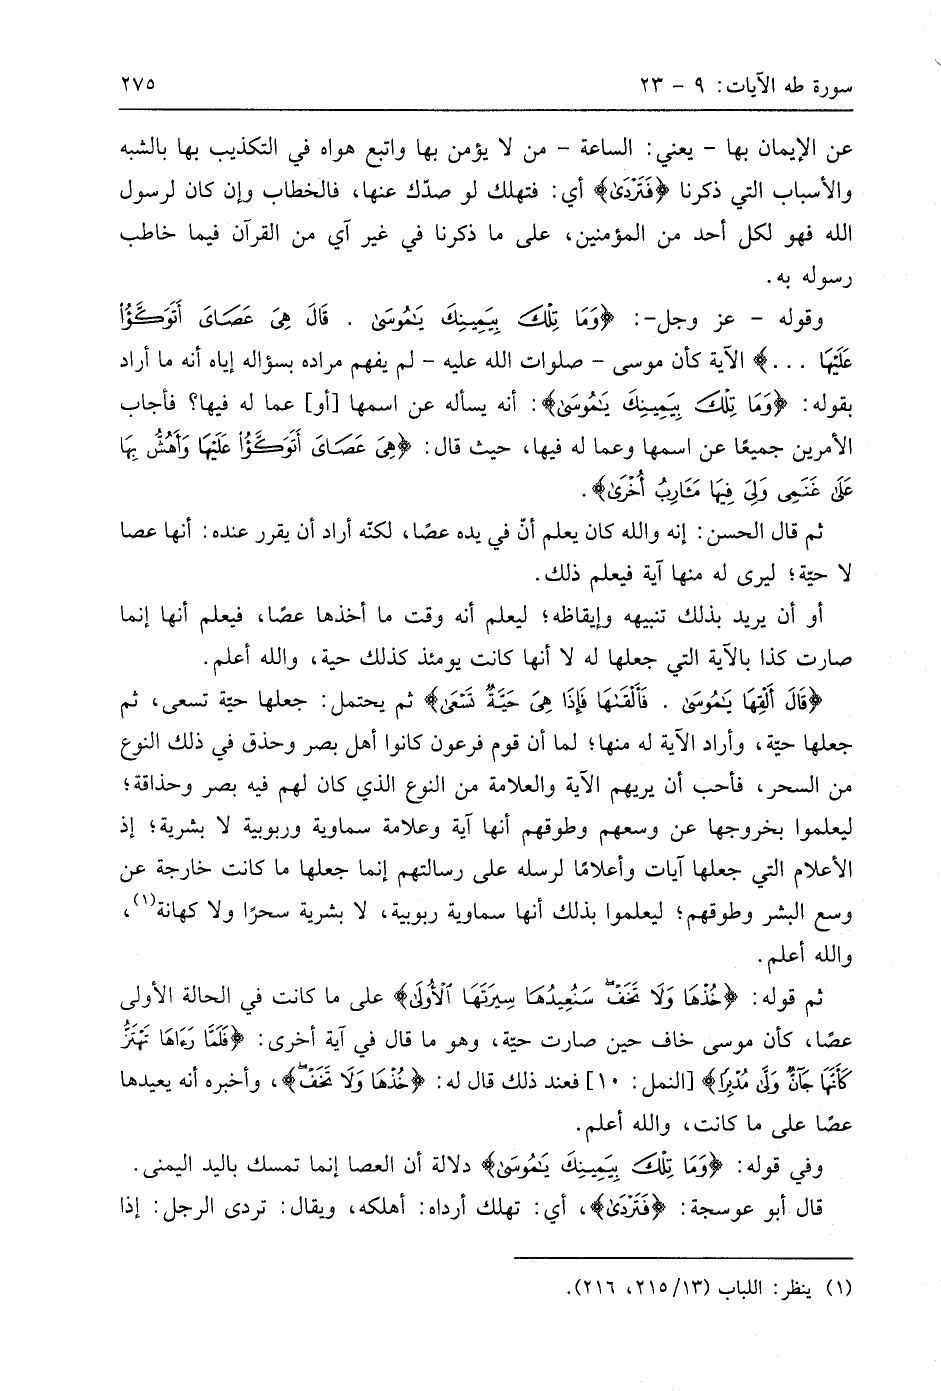 سورة طه الآيات: ٩ - ٢٣
٢٧٥
عن الإيمان بها - يعني: الساعة - من لا يؤمن بها واتبع هواه في التكذيب بها بالشبه
والأسباب التي ذكرنا ﴿فَتَرْدَىٰ﴾ أي: فتهلك لو صدّك عنها، فالخطاب وإن كان لرسول
الله فهو لكل أحد من المؤمنين، على ما ذكرنا في غير آي من القرآن فيما خاطب
رسوله به.
وقوله - عز وجل-: ﴿وَمَا تِلْكَ بِيَمِينِكَ يَٰمُوسَىٰ . قَالَ هِىَ عَصَاىَ أَتَوَكَّؤُا۟
عَلَيْهَا ...﴾ الآية كأن موسى - صلوات الله عليه - لم يفهم مراده بسؤاله إياه أنه ما أراد
بقوله: ﴿وَمَا تِلْكَ بِيَمِينِكَ يَٰمُوسَىٰ﴾: أنه يسأله عن اسمها [أو] عما له فيها؟ فأجاب
الأمرين جميعًا عن اسمها وعما له فيها، حيث قال: ﴿هِىَ عَصَاىَ أَتَوَكَّؤُا۟ عَلَيْهَا وَأَهُشُّ بِهَا
عَلَىٰ غَنَمِى وَلِىَ فِيهَا مَـَٔارِبُ أُخْرَىٰ﴾.
ثم قال الحسن: إنه والله كان يعلم أنّ في يده عصًا، لكنّه أراد أن يقرر عنده: أنها عصا
لا حيّة؛ ليرى له منها آية فيعلم ذلك.
أو أن يريد بذلك تنبيهه وإيقاظه؛ ليعلم أنه وقت ما أخذها عصًا، فيعلم أنها إنما
صارت كذا بالآية التي جعلها له لا أنها كانت يومئذ كذلك حية، والله أعلم.
﴿قَالَ أَلْقِهَا يَٰمُوسَىٰ . فَأَلْقَىٰهَا فَإِذَا هِىَ حَيَّةٌ تَسْعَىٰ﴾ ثم يحتمل: جعلها حيّة تسعى، ثم
جعلها حيّة، وأراد الآية له منها؛ لما أن قوم فرعون كانوا أهل بصر وحذق في ذلك النوع
من السحر، فأحب أن يريهم الآية والعلامة من النوع الذي كان لهم فيه بصر وحذاقة؛
ليعلموا بخروجها عن وسعهم وطوقهم أنها آية وعلامة سماوية وربوبية لا بشرية؛ إذ
الأعلام التي جعلها آيات وأعلامًا لرسله على رسالتهم إنما جعلها ما كانت خارجة عن
وسع البشر وطوقهم؛ ليعلموا بذلك أنها سماوية ربوبية، لا بشرية سحرًا ولا كهانة(١)،
والله أعلم.
ثم قوله: ﴿خُذْهَا وَلَا تَخَفْ ۖ سَنُعِيدُهَا سِيرَتَهَا ٱلْأُولَىٰ﴾ على ما كانت في الحالة الأولى
عصًا، كأن موسى خاف حين صارت حيّة، وهو ما قال في آية أخرى: ﴿فَلَمَّا رَءَاهَا تَهْتَزُّ
كَأَنَّهَا جَآنٌّ وَلَّىٰ مُدْبِرًا﴾ [النمل: ١٠] فعند ذلك قال له: ﴿خُذْهَا وَلَا تَخَفْ ۖ﴾، وأخبره أنه يعيدها
عصًا على ما كانت، والله أعلم.
وفي قوله: ﴿وَمَا تِلْكَ بِيَمِينِكَ يَٰمُوسَىٰ﴾ دلالة أن العصا إنما تمسك باليد اليمنى.
قال أبو عوسجة: ﴿فَتَرْدَىٰ﴾، أي: تهلك أرداه: أهلكه، ويقال: تردى الرجل: إذا
(١) ينظر: اللباب (٢١٥/١٣، ٢١٦).